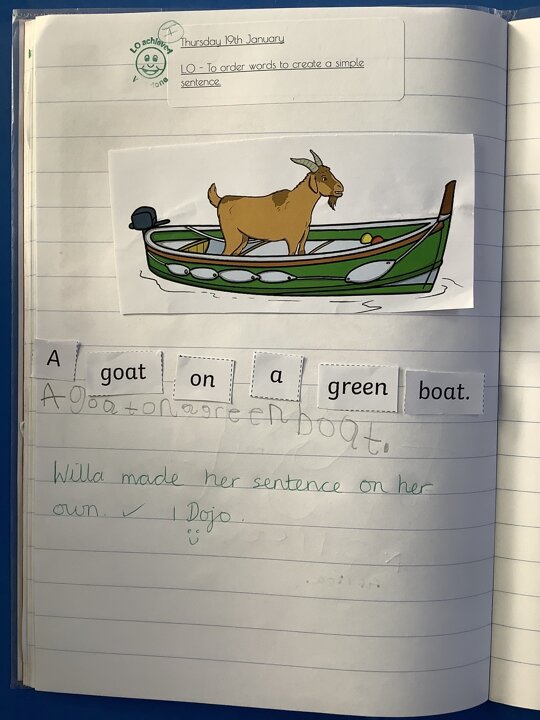 LO achieved
T
Thursday 19th January
LO - To order words to create a simple
sentence.
A goat on a green boat.
A goat on a green boat.
Willa made her sentence on her
own. ✓ 1 Dojo.